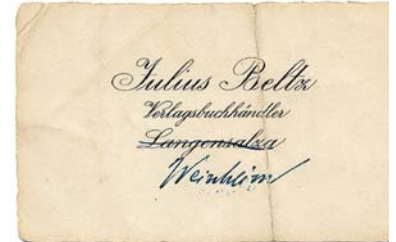 Julius Beltz
Verlagsbuchhändler
Langensalza
Weinheim